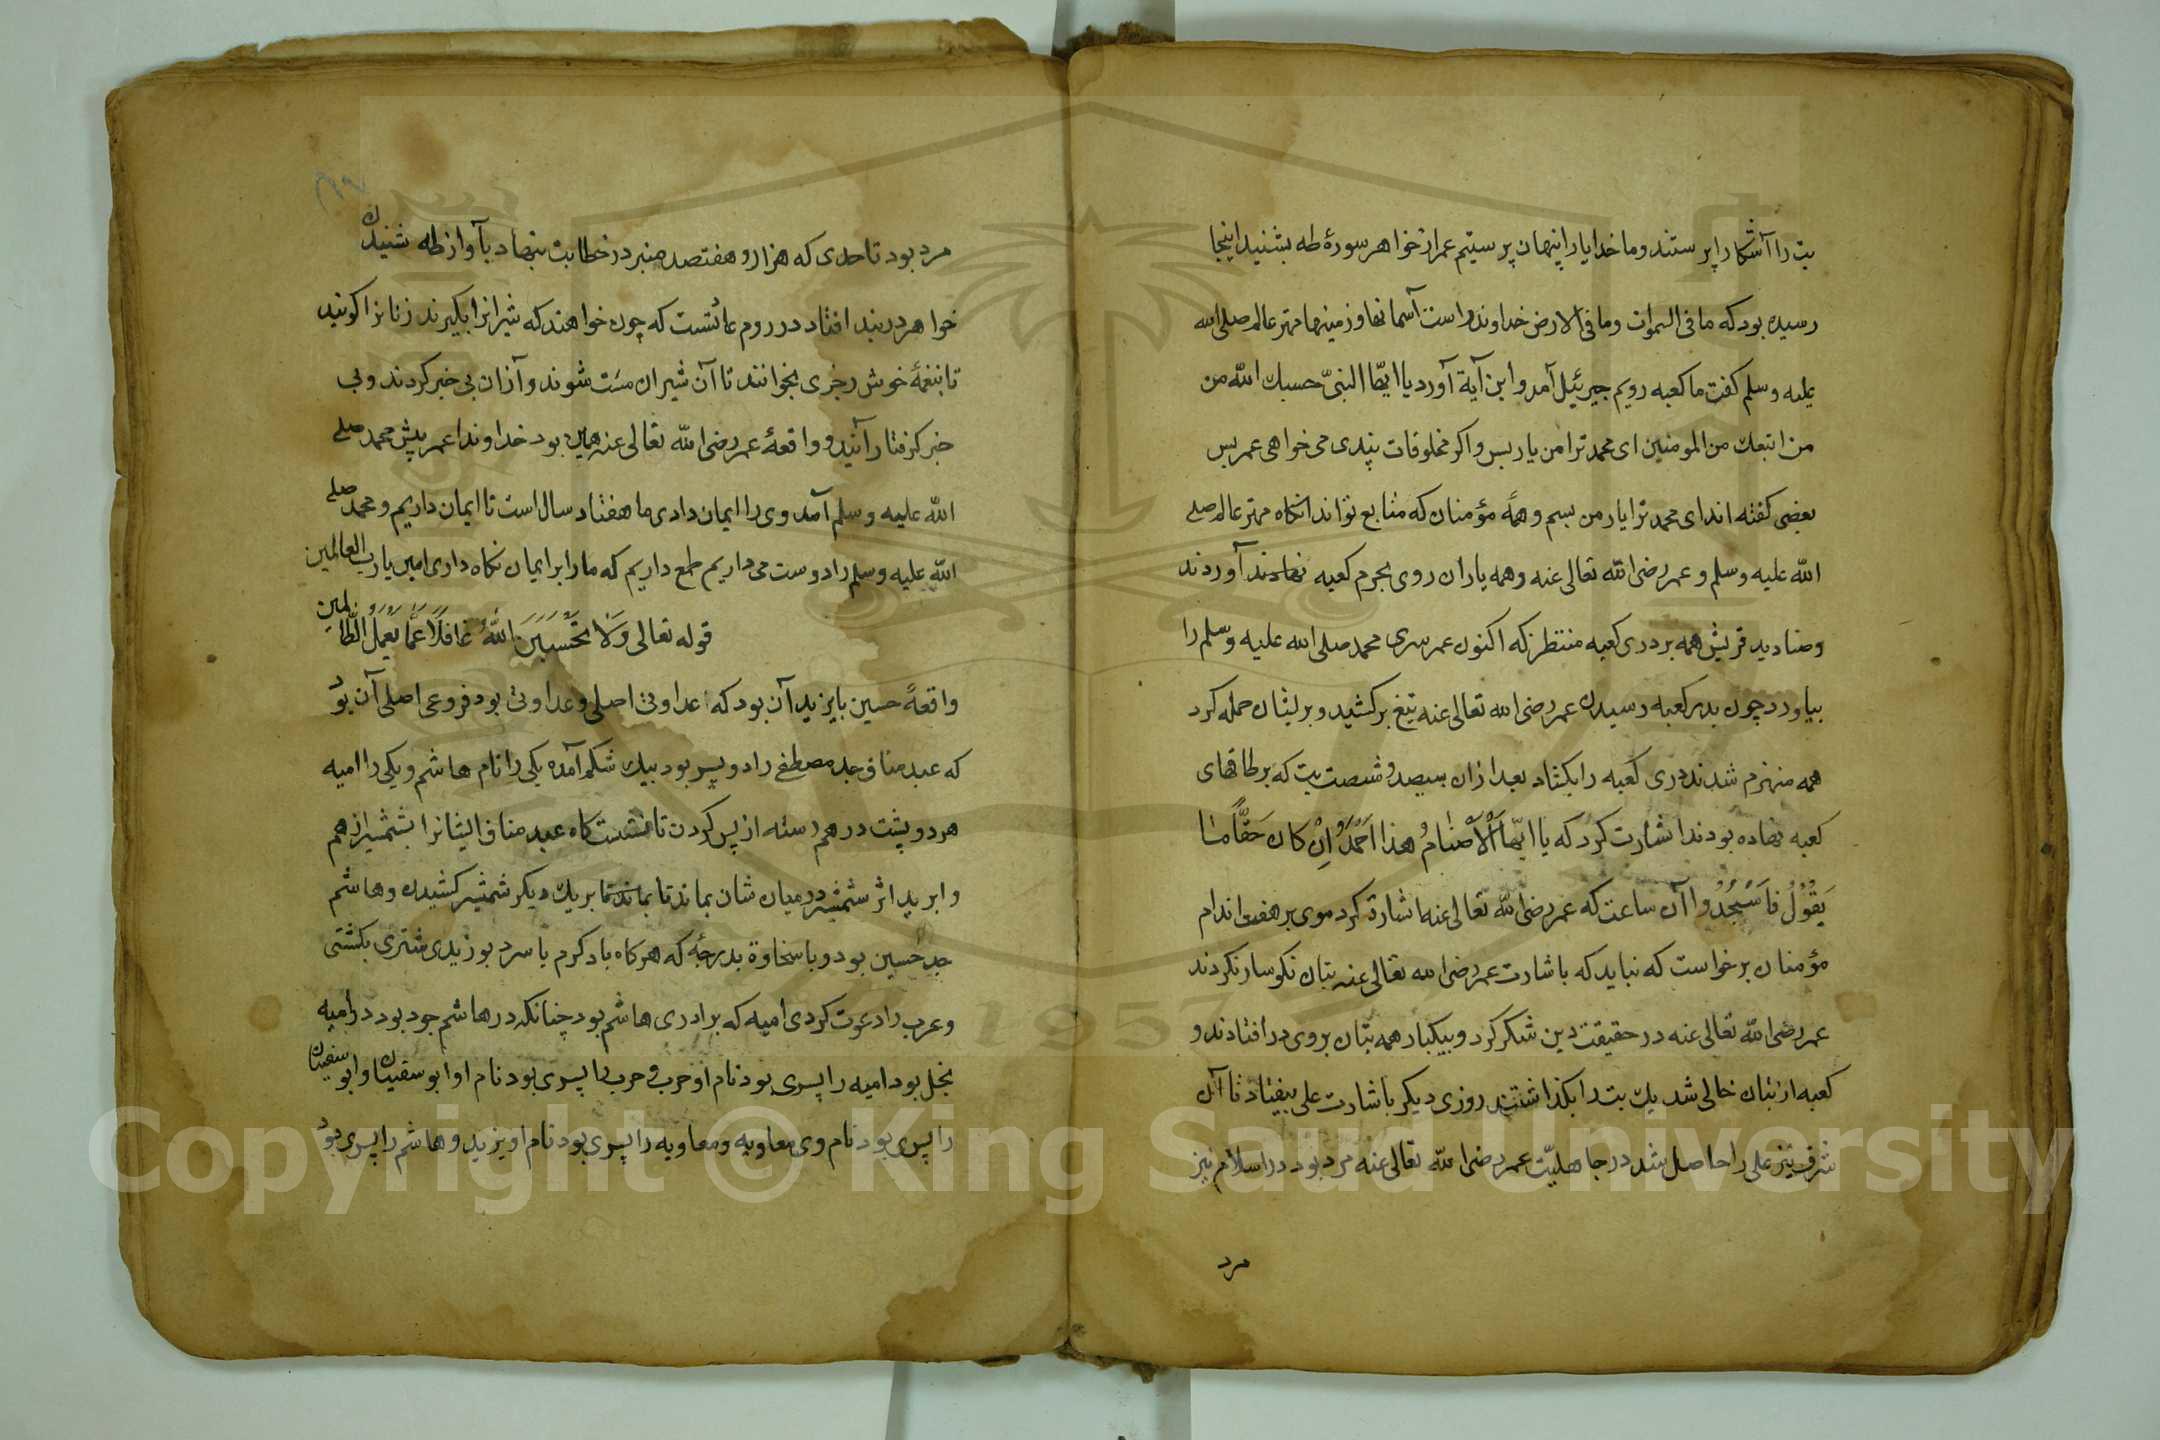 بت را آشکارا پرستند و ما خدایا را پنهان پرستیم عمر از خواهر سورهٔ طه بشنید اینجا
رسیده بود که ما فی السموات وما فی الارض خداوند راست آسمانها و زمینها مهتر عالم صلی الله
علیه وسلم کفت ما کعبه رویم جبرئیل آمد و این آیة آورد یا ایها النبیّ حسبك الله من
من اتبعك من المومنین ای محمد ترا من یار بس و اکر مخلوقات پندی می خواهی عمر بس
بعضی کفته اند ای محمد ترا یار من بسم و همهٔ مؤمنان که متابع تواند انکاه مهتر عالم صلی
الله علیه وسلم و عمر رضی الله تعالی عنه و همه یاران روی بحرم کعبه نهادند آوردند
وصنادید قریش همه بر دری کعبه منتظر که اکنون عمر سری محمد صلی الله علیه وسلم را
بیاورد چون بدر کعبه رسیدن عمر رضی الله تعالی عنه تیغ برکشید و برایشان حمله کرد
همه منهزم شدند دری کعبه را بکشاد بعد ازان سیصد و شصت بت که بر طاقهای
کعبه نهاده بودند اشارت کرد که یا ایها الْاَصْنَامُ هذا اَحْمَدُ وَاِنْ کان حَقًّا مٰا
یَقُوْلُ فَاسْجُدُوا آن ساعت که عمر رضی الله تعالی عنه اشارة کرد موی بر هفت اندام
مؤمنان برخواست که نباید که باشارت عمر رضی الله تعالی عنه بتان نکوسار نکردند
عمر رضی الله تعالی عنه در حقیقت دین شکر کرد و بیکبار همه بتان بروی در افتادند و
کعبه از بتان خالی شد یك بت را بکذاشتند روزی دیکر باشارت علی بیفتاد تا آن
شرف نیز علی را حاصل شد در جاهلیّت عمر رضی الله تعالی عنه مرد بود در اسلام نیز
مرد
مرد بود تا حدی که هزار و هفتصد منبر در خطابت بنهاد بآواز طه شنیدن
خواهر در بند افتاد در روم عادتست که چون خواهند که شیرانرا بکیرند زنانرا کویند
تا بنغمهٔ خوش رجزی بخوانند تا آن شیران مست شوند و آزان بی خبر کردند و بی
خبر کرفتار آیند و واقعهٔ عمر رضی الله تعالی عنه همین بود خداوندا عمر پیش محمد صلی
الله علیه وسلم آمد وی را ایمان دادی ما هفتاد سال است تا ایمان داریم و محمد صلی
الله علیه وسلم را دوست می داریم طمع داریم که ما را بر ایمان نکاه داری امین یا رب العالمین
قوله تعالی وَلَا تَحْسَبَنَّ اللّٰهَ غَافِلًا عَمَّا یَعْمَلُ الظّالِمین
واقعهٔ حسین با یزید آن بود که عداوتی اصلی و عداوتی بود فروعی اصلی آن بود
که عبد مناف جد مصطفی را دو پسر بود بیك شکم آمده یکی را نام هاشم و یکی را امیه
هر دو پشت در هم رسته از پس کردن تا نشست کاه عبد مناف ایشانرا بشمشیر از هم
وا برید اثر شمشیر در میان شان بماند تا بماند تا بریك دیکر شمشیر کشیدن و هاشم
جد حسین بود و با سخاوة بدرجهٔ که هرکاه باد کرم یا سرد بوزیدی شتری بکشتی
و عرب را دعوت کردی امیه که برادری هاشم بود چنانکه در هاشم جود بود در امیه
بخل بود امیه را پسری بود نام او حرب و حرب را پسری بود نام او ابو سفیان و ابو سفیان
را پسری بود نام وی معاویه و معاویه را پسری بود نام او یزید و هاشم را پسری بود
Copyright © King Saud University
1957